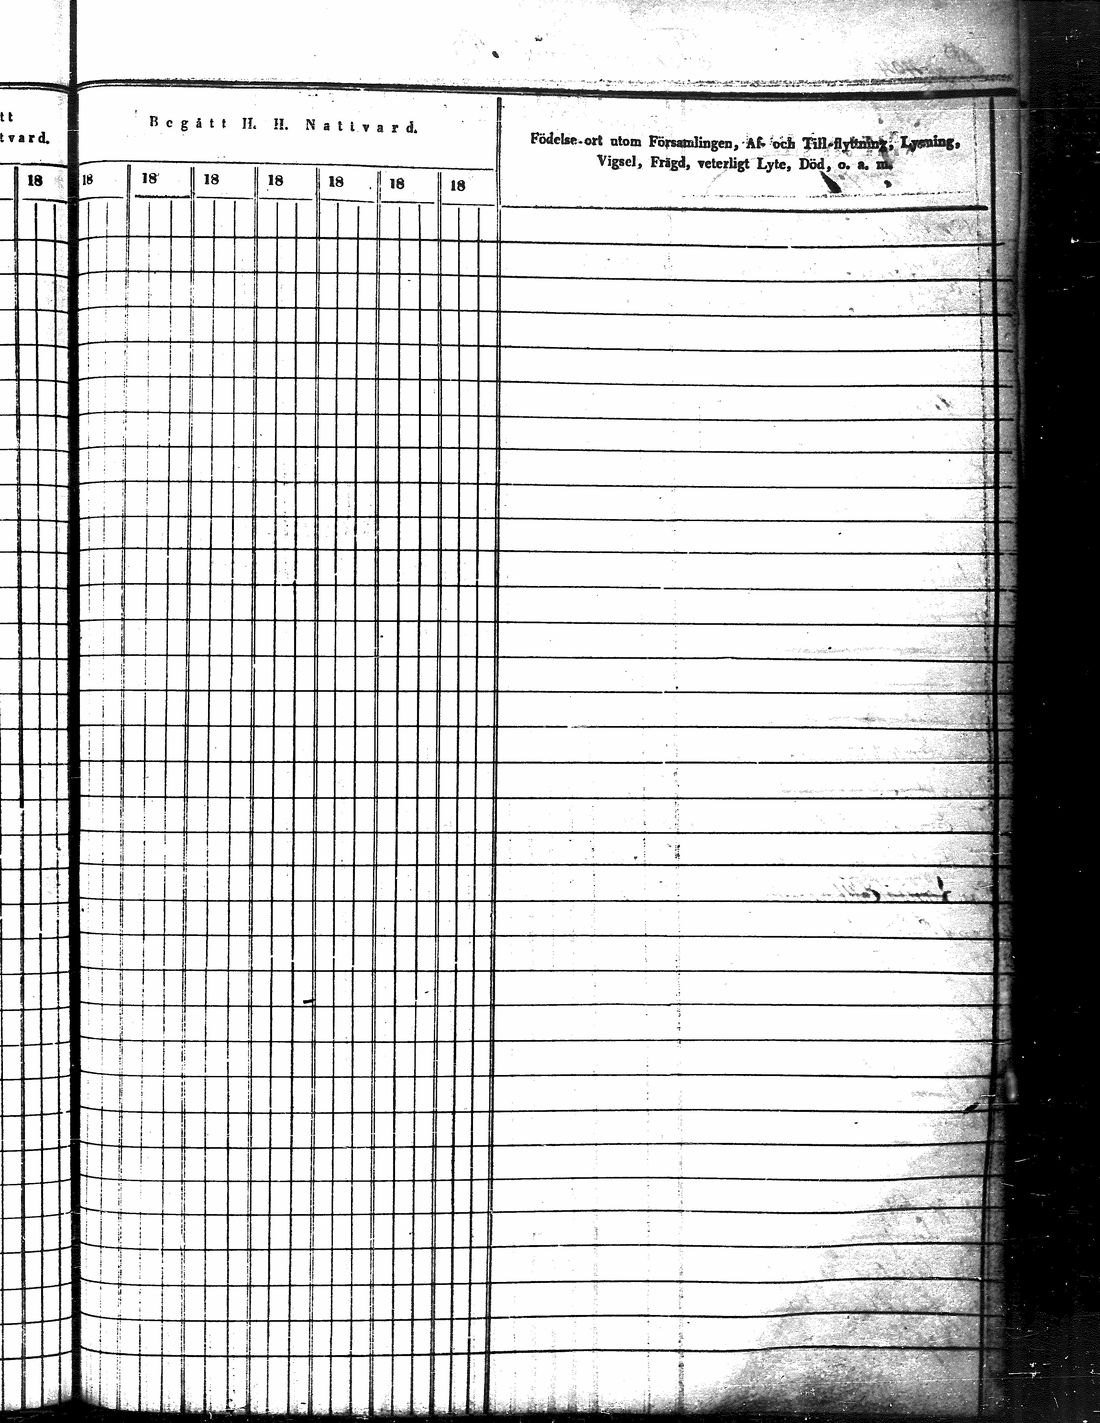 tt
tvard.
18
Begått H. H. Nattvard.
18 18 18 18 18 18 18
Födelse-ort utom Församlingen, Af- och Till-flyttning, Lysning,
Vigsel, Frägd, veterligt Lyte, Död, o. a. m.